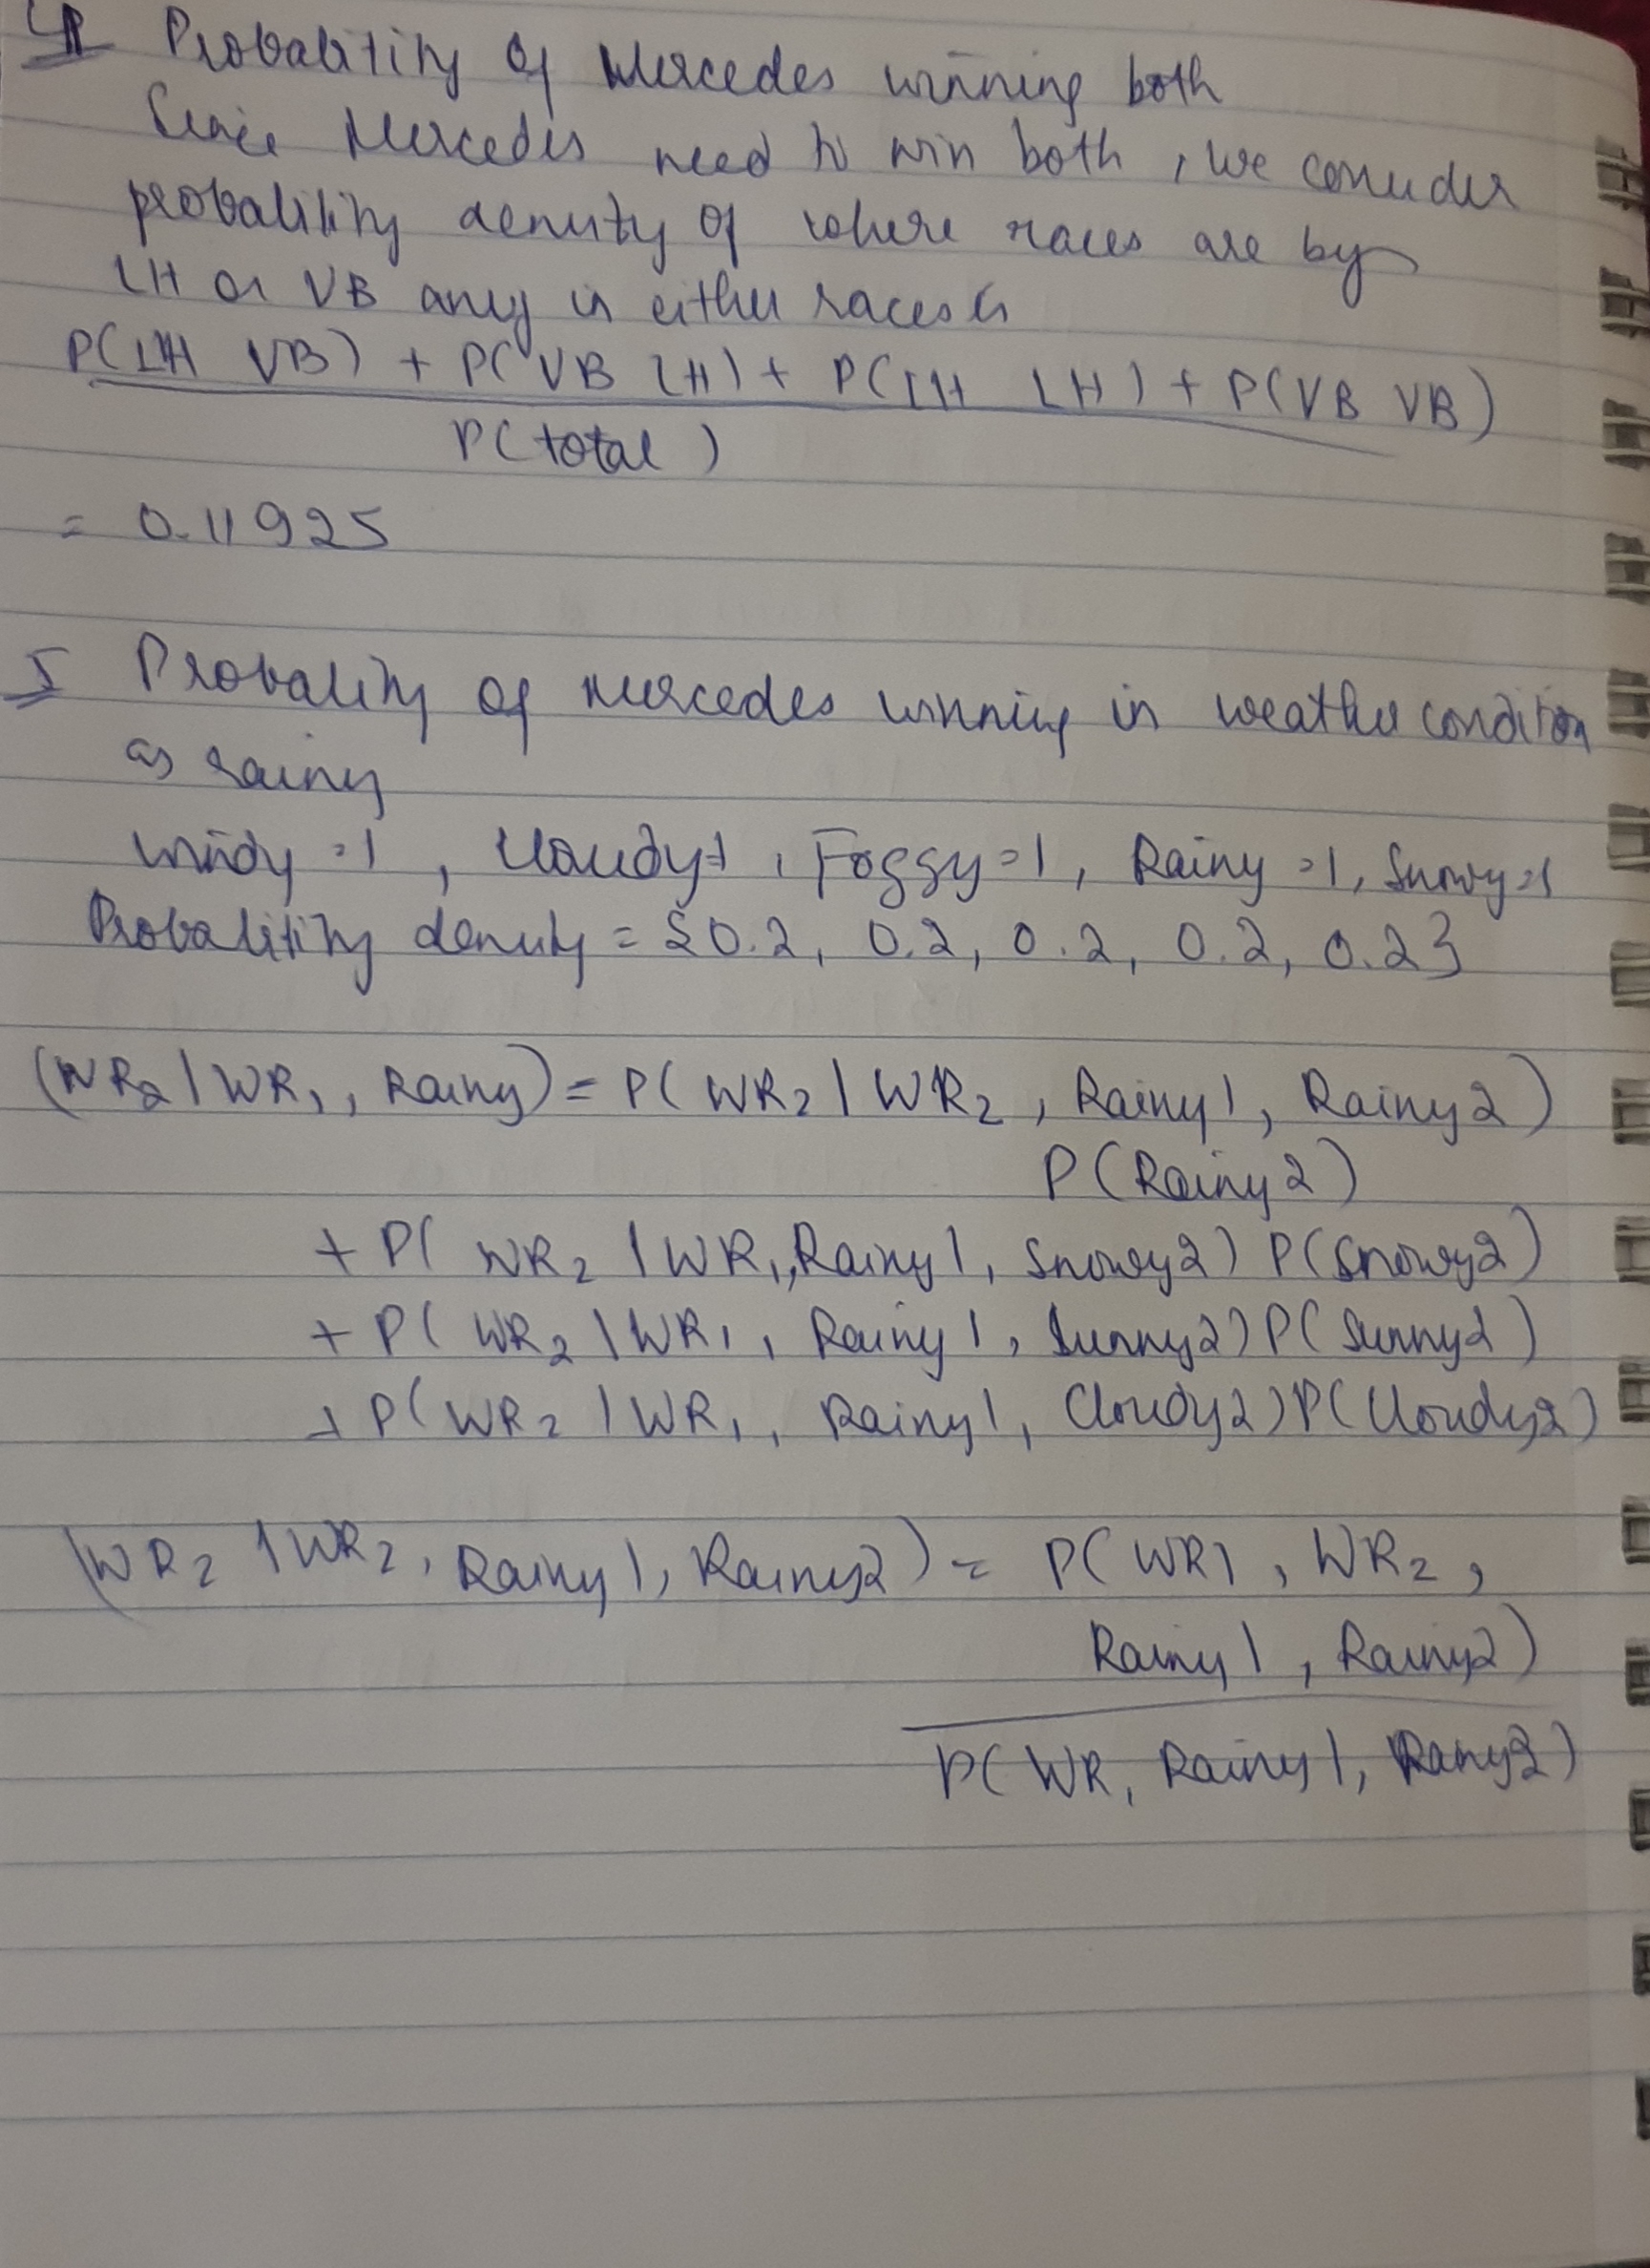 4 Probabilitiy of Mercedes winning both
Since Mercedes need to win both, we consider
probability density of where races are by
LH or VB any in either races
P(LH VB) + P(VB LH) + P(LH LH) + P(VB VB)
P(total)
= 0.11925
5 Probality of Mercedes winning in weather condition
as rainy
windy = 1, Cloudy=1, Foggy=1, Rainy=1, Snowy=1
Probabilitiy density = {0.2, 0.2, 0.2, 0.2, 0.2}
(WR2 | WR1, Rainy) = P(WR2 | WR2, Rainy1, Rainy2)
P(Rainy2)
+ P( WR2 | WR1, Rainy1, Snowy2) P(Snowy2)
+ P( WR2 | WR1, Rainy1, Sunny2) P(Sunny2)
+ P(WR2 | WR1, Rainy1, Cloudy2) P(Cloudy2)
(WR2 | WR2, Rainy1, Rainy2) = P(WR1, WR2,
Rainy1, Rainy2)
P(WR, Rainy1, Rainy2)